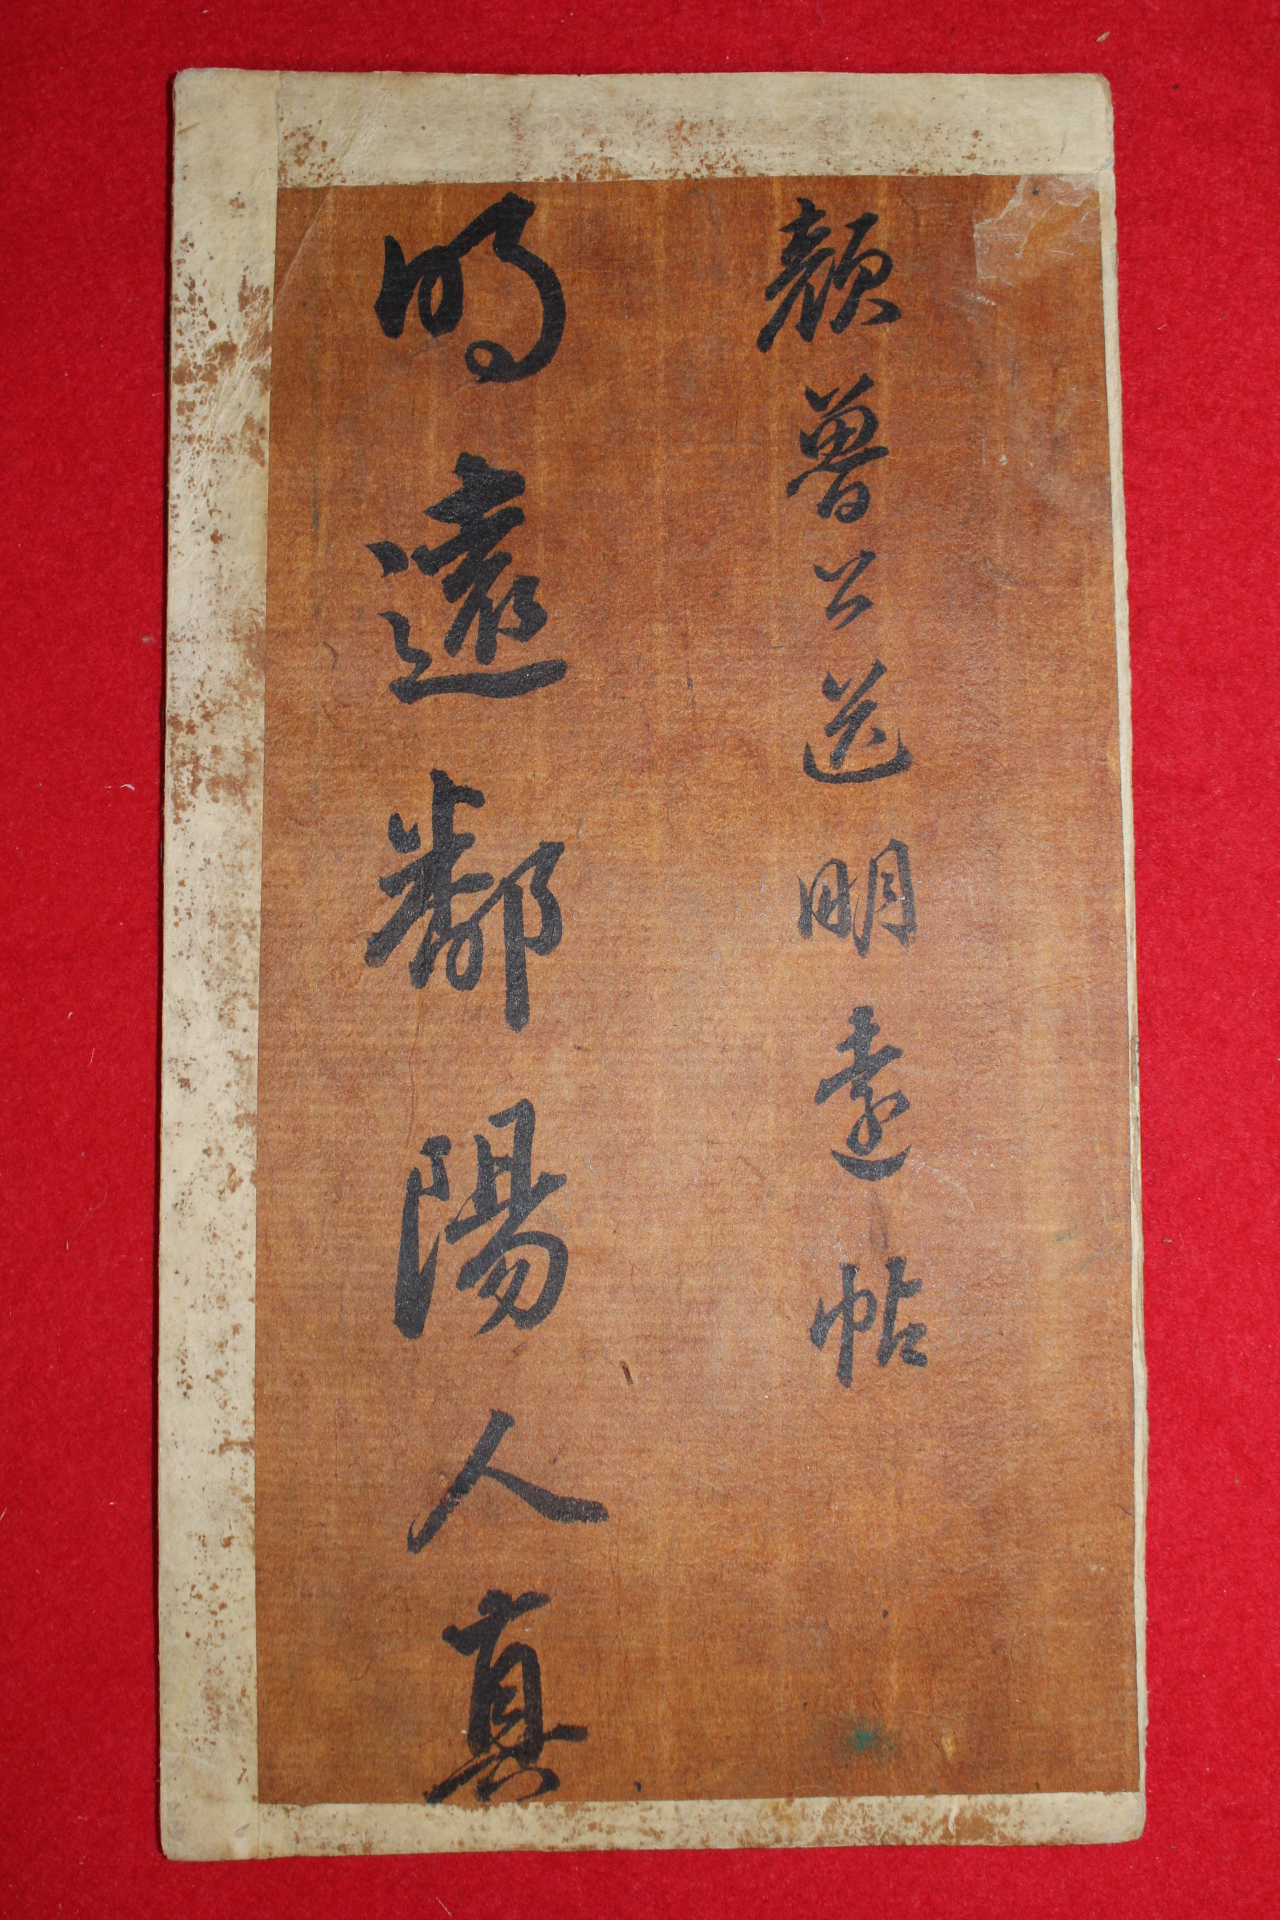 顔魯公送明遠帖
明遠鄱陽人真